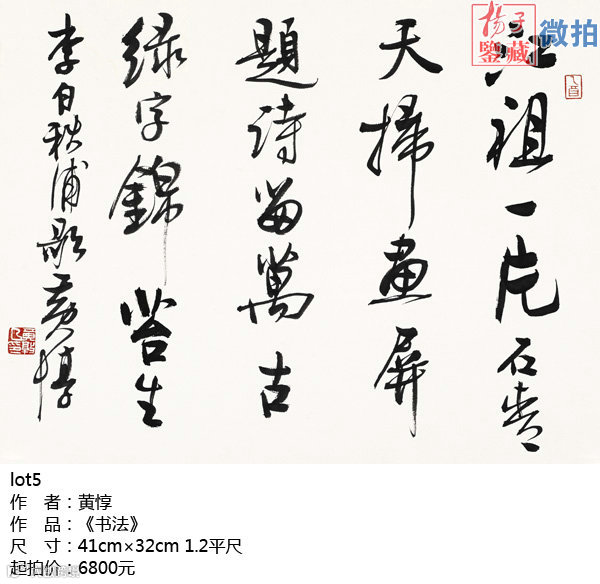 江祖一片石青
天掃畫屏
題詩留萬古
綠字錦苔生
李白秋浦歌黃惇
揚子
鑒藏
微拍
lot5
作 者：黄惇
作 品：《书法》
尺 寸：41cm×32cm 1.2平尺
起拍价：6800元